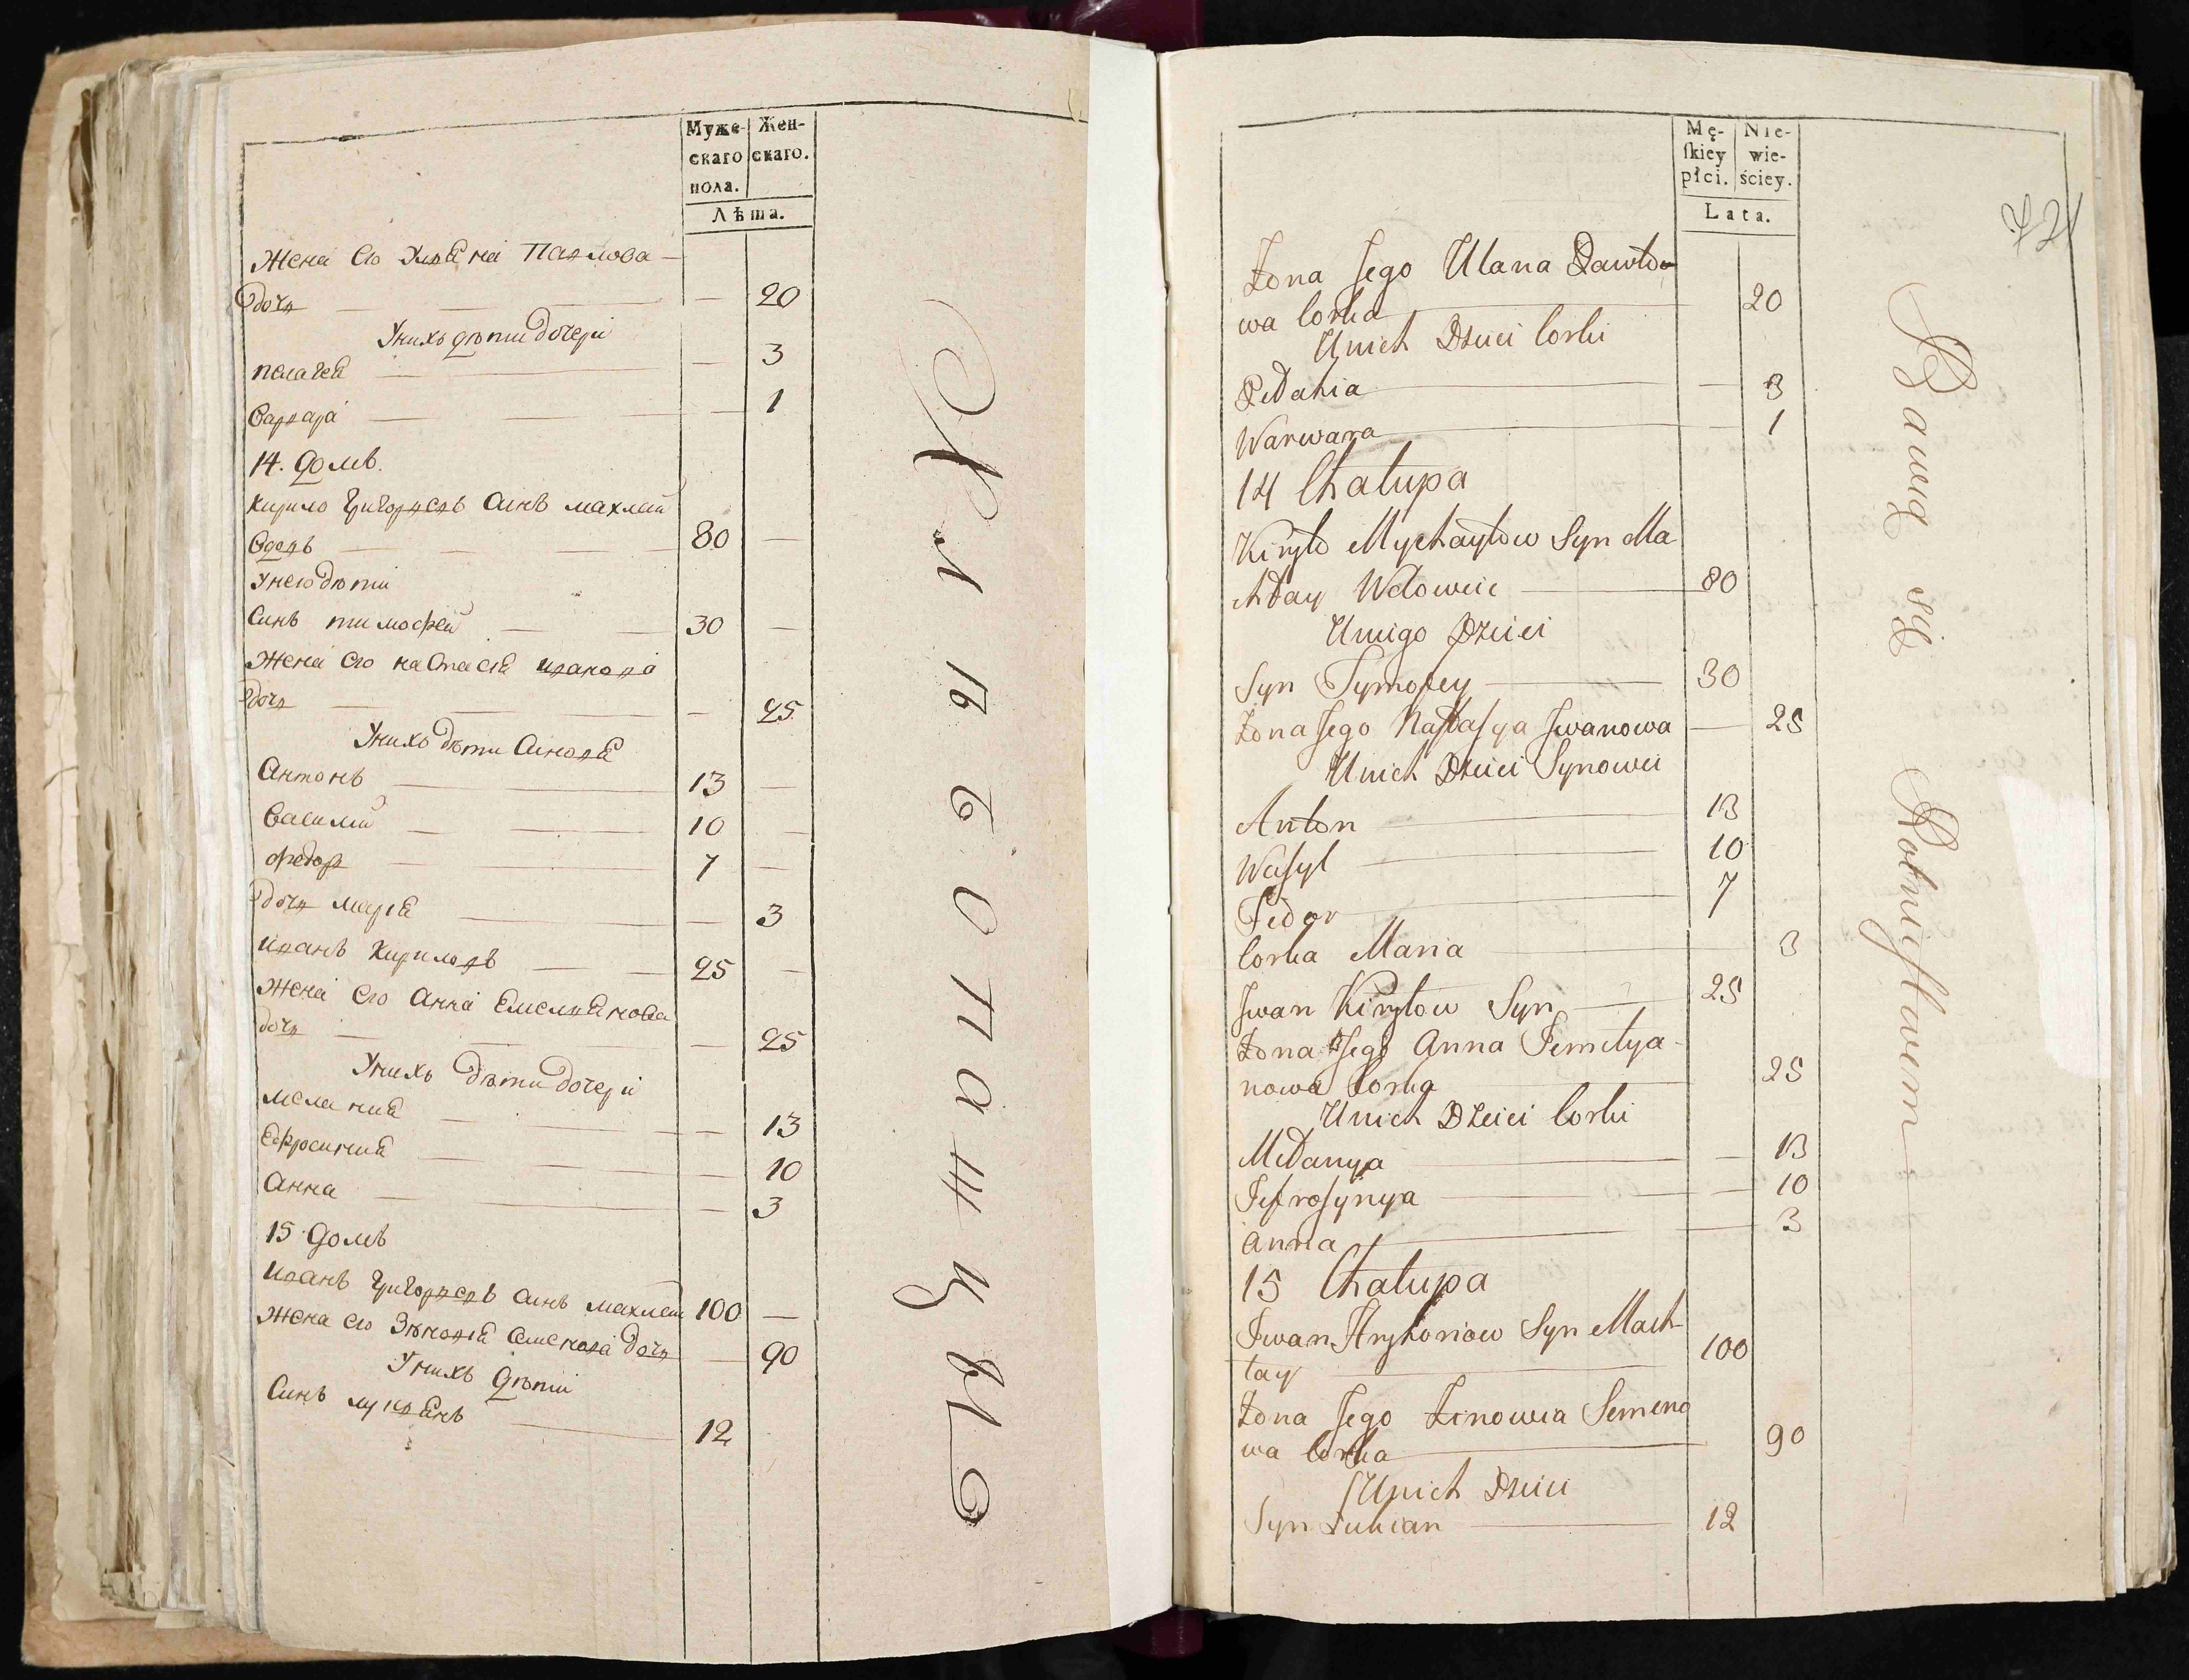 Муже-
скаго
пола.
Жен-
скаго.
Лѣта.
Жена его Улѣяна Павлова
дочъ — 20
У нихъ дѣти дочери
пелагея — 3
варвара — 1
14. домъ.
Кирило Григорьевъ синъ махлай
вдовъ 80 —
У него дѣти
Синъ тимофей 30 —
Жена его настасія иванова
дочъ — 25
У нихъ дѣти синовя
Антонъ 13 —
Василий 10 —
федоръ 7 —
дочъ марія — 3
иванъ Кириловъ 25 —
Жена его Анна Емельянова
дочъ — 25
У нихъ дѣти дочери
мелания — 13
Ефросиния — 10
Анна — 3
15 домъ
иванъ Григорьевъ синъ махлай 100 —
Жена его Зѣновія Семенова дочъ — 90
У нихъ дѣти
Синъ лукянъ 12
Mę-
skiey
płci.
Nie-
wie-
ściey.
Lata.
421
Żona Jego Ulana Pawło-
wa Corka 20
U nich Dzieci Corki
Pełahia — 3
Warwara — 1
14 Chałupa
Kiryło Mychayłow Syn Ma
chłay Wdowiec 80
U niego Dzieci
Syn Tymofey 30
Żona Jego Nastasya Jwanowa — 25
U nich Dzieci Synowie
Anton 13
Wasyl 10
Fedor 7
Corka Maria 3
Jwan Kiryłow Syn 25
Żona Jego Anna Jemelya-
nowa Corka 25
U nich Dzieci Corki
Melanya — 13
Jefrosynya — 10
Anna — 3
15 Chałupa
Jwan Hryhoriow Syn Mach-
łay 100
Żona Jego Zinowia Semeno
wa Corka 90
U nich Dzieci
Syn Łukian 12
Bawią się Rolnictwem